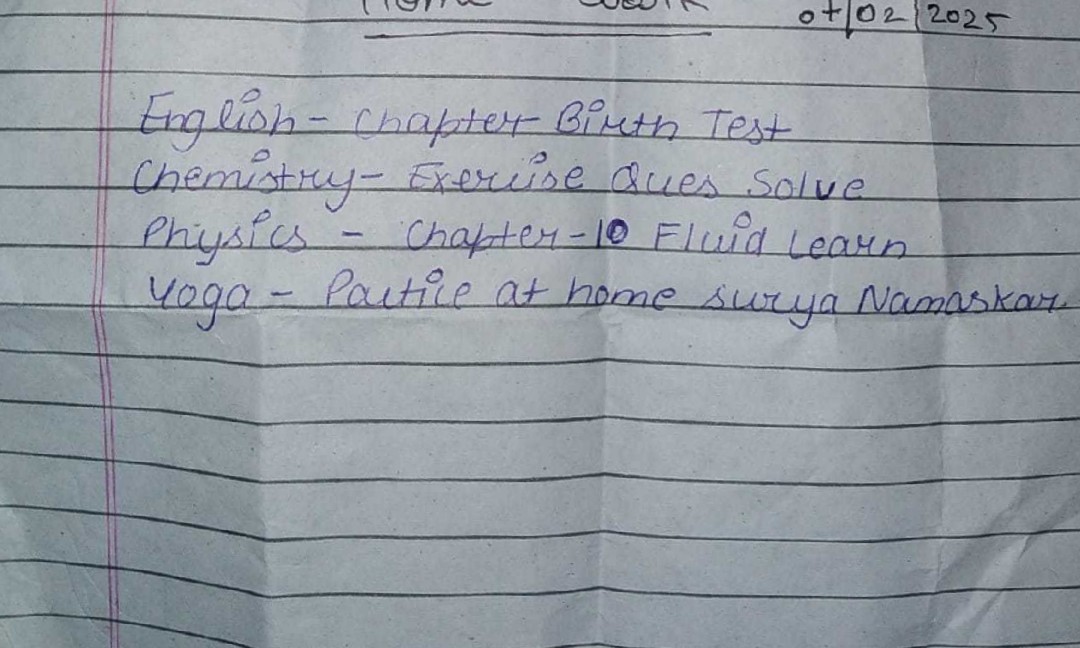 Home Work 07/02/2025
English - Chapter Birth Test
Chemistry - Exercise Ques Solve
Physics - Chapter-10 Fluid Learn
Yoga - Pactice at home surya Namaskar.